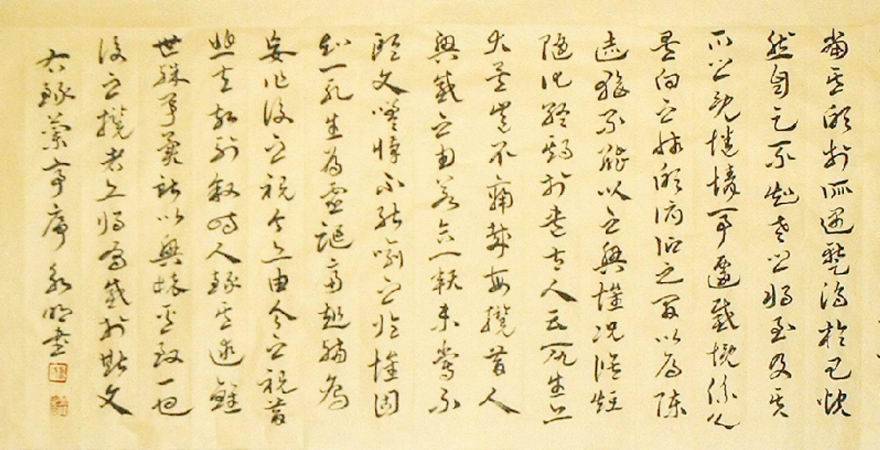 當其欣於所遇暫得於己快
然自足不知老之將至及其
所之既惓情事遷感慨係之
矣向之所欣俯仰之間以為陳
迹猶不能以之興懷況脩短
隨化終期於盡古人云死生亦
大矣豈不痛哉每攬昔人
興感之由若合一契未嘗不
臨文嗟悼不能喻之於懷固
知一死生為虛誕齊彭殤為
妄作後之視今亦由今之視昔
悲夫故列敘時人錄其所述雖
世殊事異所以興懷其致一也
後之攬者亦將有感於斯文
右錄蘭亭序 永明書